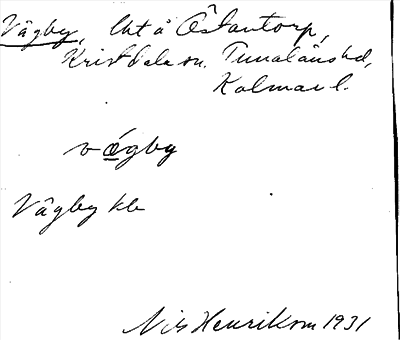 Vågby, lht å Östantorp,
Kristdala sn. Tunaläns hd,
Kalmar l.
vǫ́gby
Vågby kb
Nils Henrikson 1931